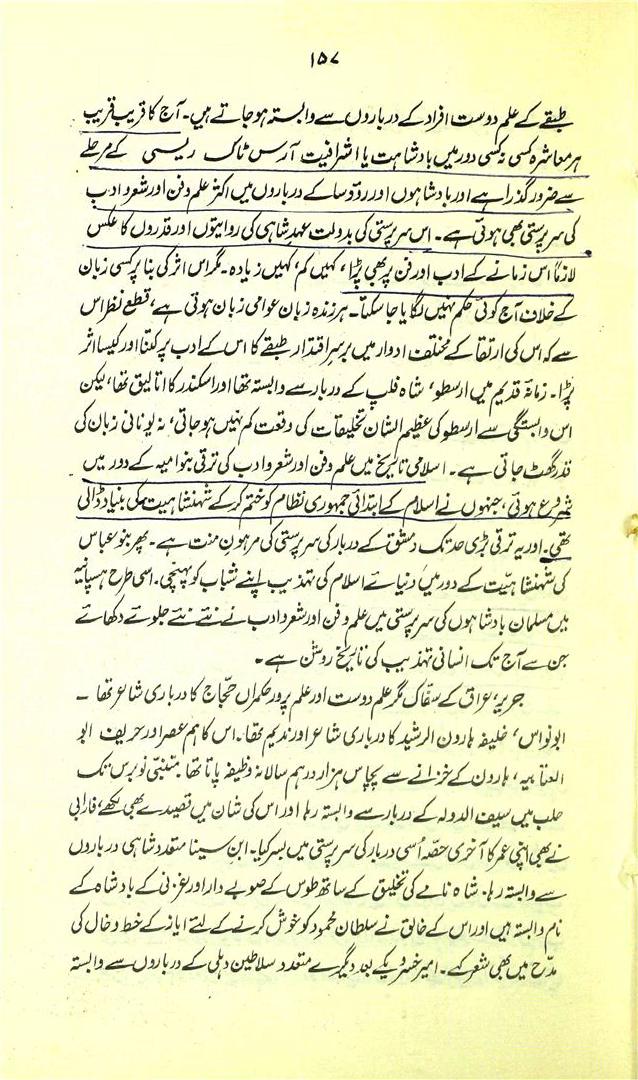 ۱۵۷
طبقے کے علم دوست افراد کے درباروں سے وابستہ ہو جاتے ہیں۔ آج کا قریب قریب
ہر معاشرہ کسی نہ کسی دور میں بادشاہت یا اشرافیت آرس ٹاک ریسی کے مرحلے
سے ضرور گذرا ہے اور بادشاہوں اور رؤوسا کے درباروں میں اکثر علم وفن اور شعر و ادب
کی سرپرستی بھی ہوتی ہے۔ اس سرپرستی کی بدولت عہدِ شاہی کی روایتوں اور قدروں کا عکس
لازماً اس زمانے کے ادب اور فن پر بھی پڑا، کہیں کم، کہیں زیادہ۔ مگر اس اثر کی بنا پر کسی زبان
کے خلاف آج کوئی حکم نہیں لگایا جا سکتا۔ ہر زندہ زبان عوامی زبان ہوتی ہے، قطع نظر اس
سے کہ اس کی ارتقا کے مختلف ادوار میں برسرِ اقتدار طبقے کا اس کے ادب پر کتنا اور کیسا اثر
پڑا۔ زمانۂ قدیم میں ارسطو، شاہ فلپ کے دربار سے وابستہ تھا اور اسکندر کا اتالیق تھا، لیکن
اس وابستگی سے ارسطو کی عظیم الشان تخلیقات کی وقعت کم نہیں ہو جاتی، نہ یونانی زبان کی
قدر گھٹ جاتی ہے۔ اسلامی تاریخ میں علم وفن اور شعر و ادب کی ترقی بنو امیہ کے دور میں
شروع ہوئی، جنہوں نے اسلام کے ابتدائی جمہوری نظام کو ختم کر کے شہنشاہیت کی بنیاد ڈالی
تھی۔ اور یہ ترقی بڑی حد تک دمشق کے دربار کی سرپرستی کی مرہونِ منت ہے۔ پھر بنو عباس
کی شہنشاہیّت کے دور میں دنیائے اسلام کی تہذیب اپنے شباب کو پہنچی۔ اسی طرح ہسپانیہ
میں مسلمان بادشاہوں کی سرپرستی میں علم وفن اور شعر و ادب نے نئے نئے جلوے دکھائے
جن سے آج تک انسانی تہذیب کی تاریخ روشن ہے۔
جریر، عراق کے سفّاک مگر علم دوست اور علم پرور حکمراں حجّاج کا درباری شاعر تھا۔
ابو نواس، خلیفہ ہارون الرشید کا درباری شاعر اور ندیم تھا۔ اس کا ہم عصر اور حریف ابو
العتاہیہ، ہارون کے خزانے سے پچاس ہزار درہم سالانہ وظیفہ پاتا تھا متنبّی نو برس تک
حلب میں سیف الدولہ کے دربار سے وابستہ رہا اور اس کی شان میں قصیدے بھی لکھے، فارابی
نے بھی اپنی عمر کا آخری حصّہ اُسی دربار کی سرپرستی میں بسر کیا۔ ابنِ سینا متعدد شاہی درباروں
سے وابستہ رہا۔ شاہ نامے کی تخلیق کے ساتھ طوس کے صوبے دار اور غزنی کے بادشاہ کے
نام وابستہ ہیں اور اس کے خالق نے سلطان محمود کو خوش کرنے کے لئے ایاز کے خط و خال کی
مدّح میں بھی شعر کہے۔ امیر خسرو یکے بعد دیگرے متعدد سلاطین دہلی کے درباروں سے وابستہ